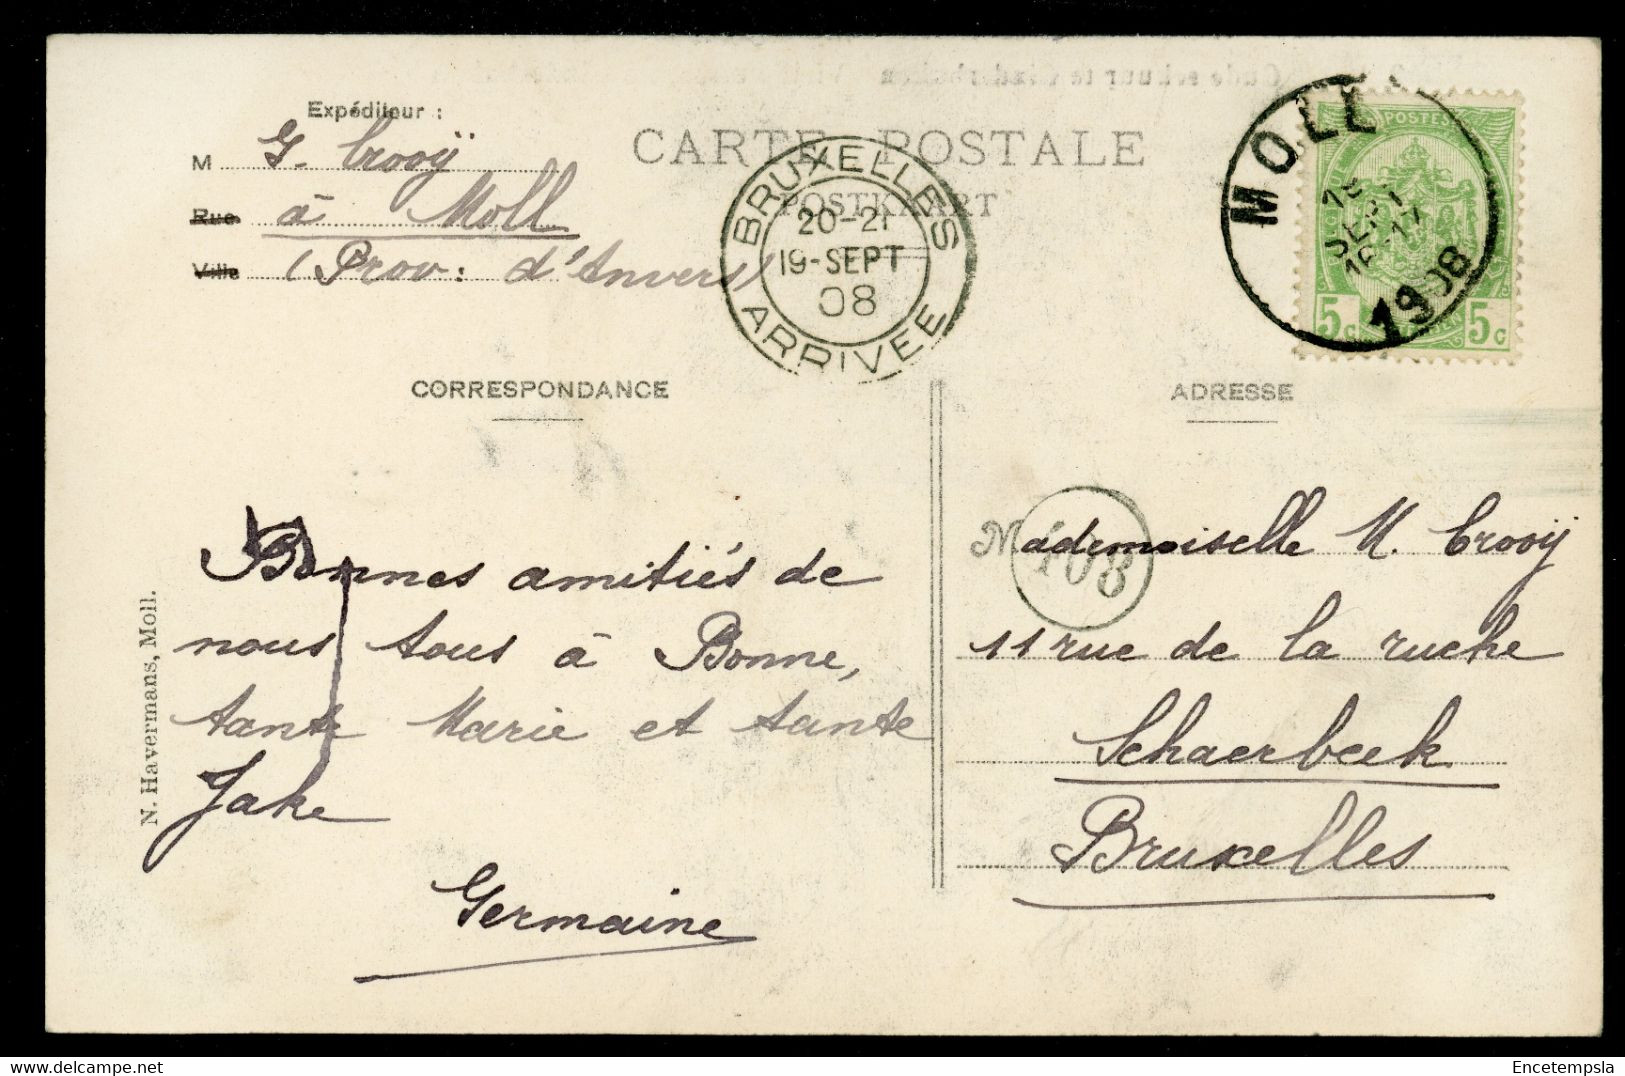 Expéditeur :
M G. Crooÿ
Rue à Moll
Ville (Prov. d'Anvers)
CARTE POSTALE
POSTKAART
BRUXELLES
20-21
19-SEPT
08
ARRIVEE
MOLL
SEPT
1908
POSTES
5c 5c
CORRESPONDANCE
ADRESSE
Bonnes amitiés de
nous tous à Bonne,
tante Marie et tante
Jake
Germaine
Mademoiselle M. Crooÿ
408
11 rue de la ruche
Schaerbeek
Bruxelles
N. Havermans, Moll.
Encetempsla